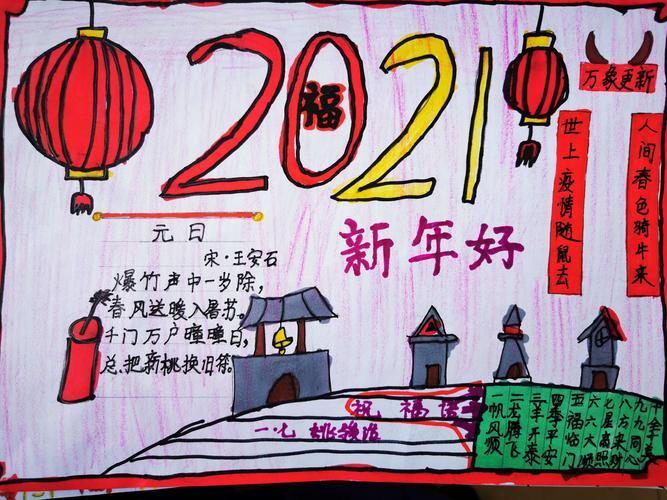 2021
福
万象更新
世上疫情随鼠去
人间春色骑牛来
新年好
元日
宋·王安石
爆竹声中一岁除,
春风送暖入暑苏。
千门万户瞳瞳日,
总把新桃换旧符。
祝福语
一帆风顺
二龙腾飞
三羊开泰
四季平安
五福临门
六六大顺
七星高照
八方来财
九九同心